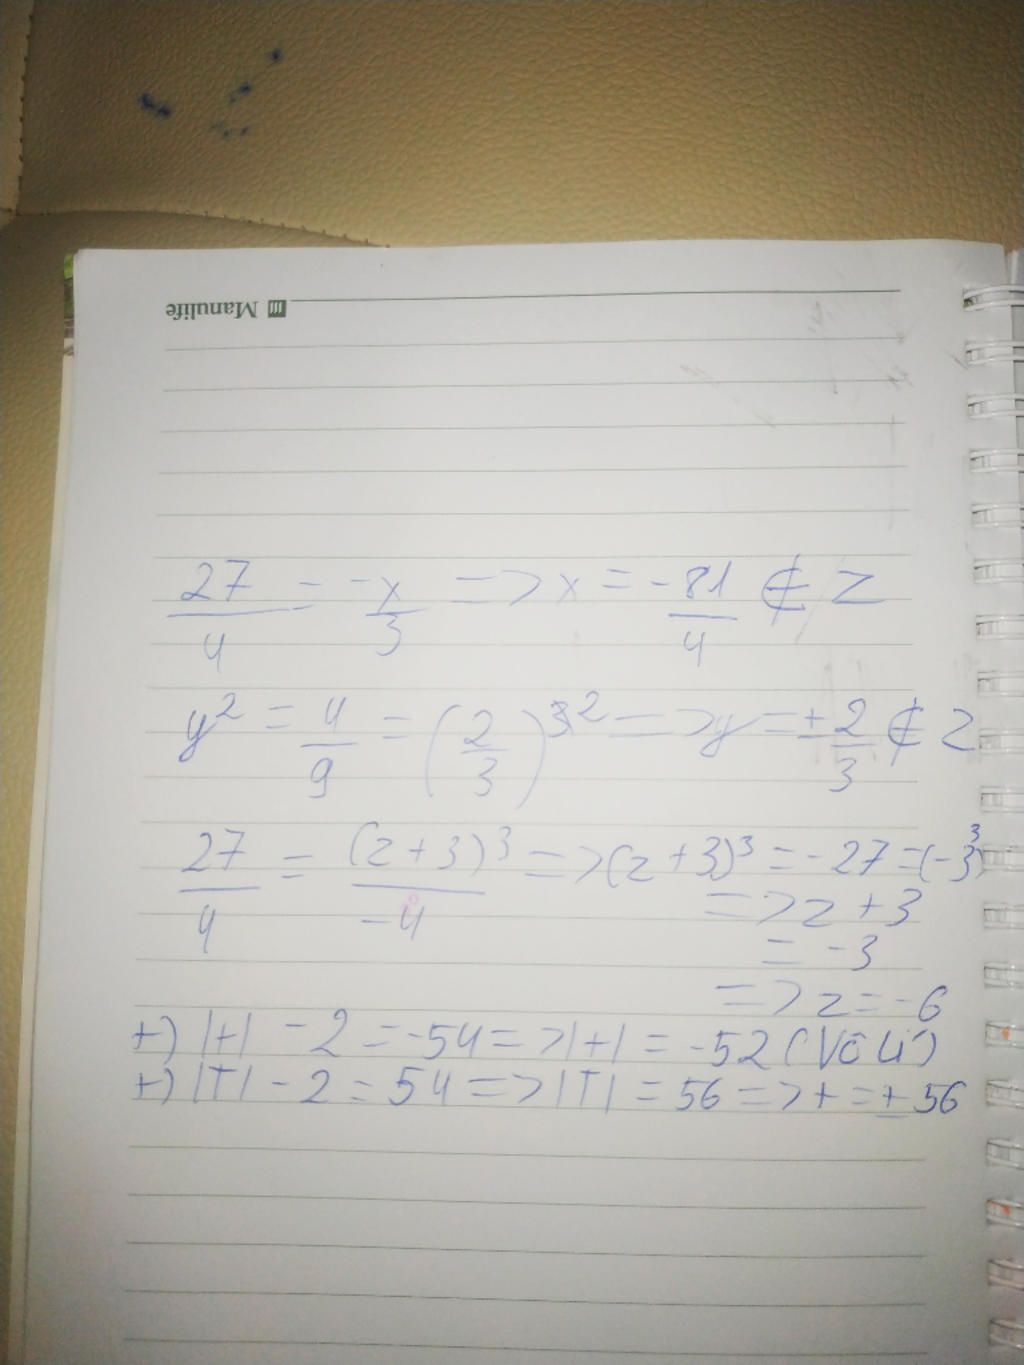 Manulife
27/4 = -x/3 => x = -81/4 ∉ Z
y² = 4/9 = (2/3)² => y = ± 2/3 ∉ Z
27/4 = (z+3)³/-4 => (z+3)³ = -27 = (-3)³
=> z + 3
= -3
=> z = -6
+) |t| - 2 = -54 => |t| = -52 (Vô lí)
+) |T| - 2 = 54 => |T| = 56 => t = ± 56